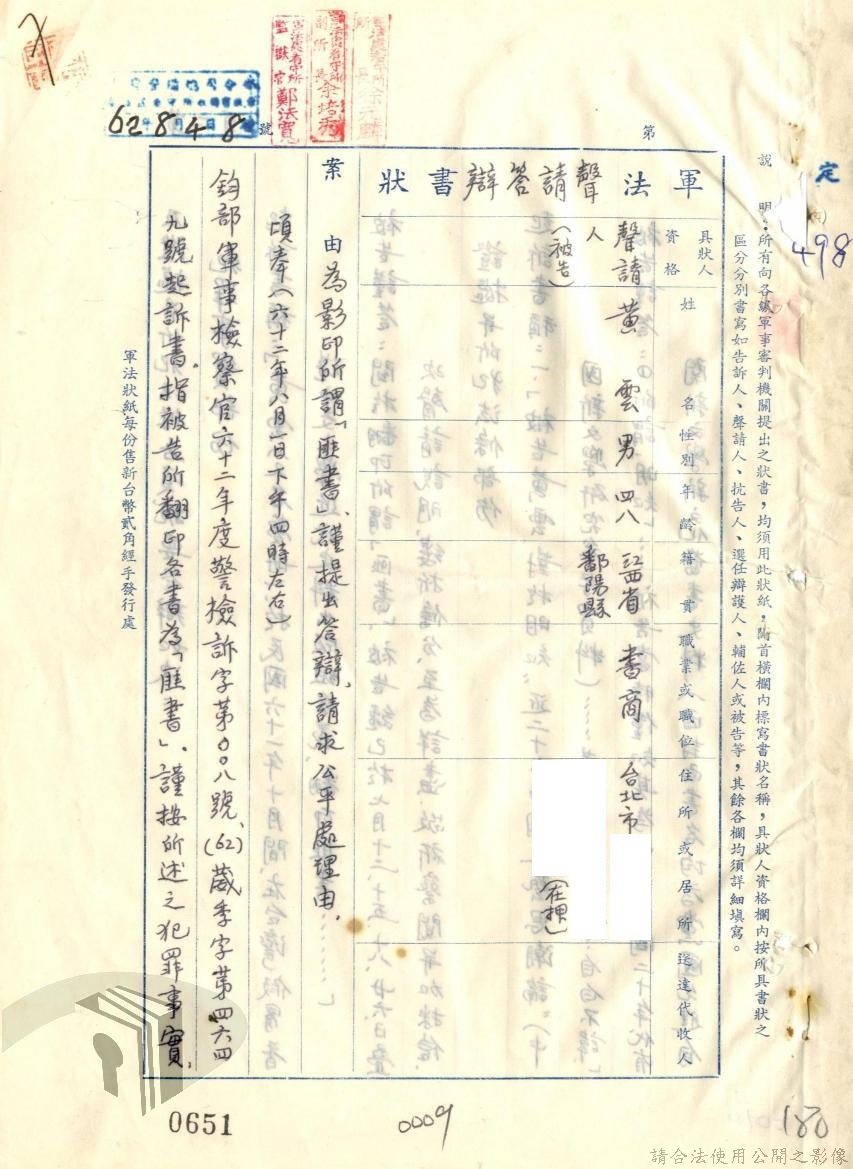 定
498
說　明：所有向各級軍事審判機關提出之狀書，均須用此狀紙，附首橫欄內標寫書狀名稱，具狀人資格欄內按所具書狀之
區分分別書寫如告訴人、聲請人、抗告人、選任辯護人、輔佐人或被告等，其餘各欄均須詳細填寫。
第
號
62 8 4 8
監獄官 鄭法寬
軍法聲請答辯書狀
具狀人資格
姓名
性別
年齡
籍貫
職業或職位
住所或居所
送達代收人
聲請人（被告）
黃雲
男
四八
江西省鄱陽縣
書商
台北市
（在押）
案由為影印所謂「匪書」、謹提出答辯，請求公平處理由。
頃奉（六十二年八月一日下午四時左右）
鈞部軍事檢察官六十二年度警檢訴字第00八號、(62)葳季字第四六四
九號起訴書，指被告所翻印各書為「匪書」、謹按所述之犯罪事實，
軍法狀紙每份售新台幣貳角經手發行處
0651
0009
180
請合法使用公開之影像